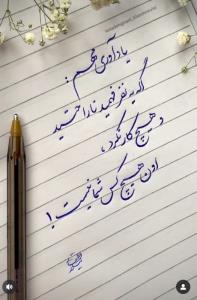 یادآوری مهم :
اگه یه نفر فهمید ناراحتید
و هیچ کار نکرد ،
اون هیچ کس شما نیست !